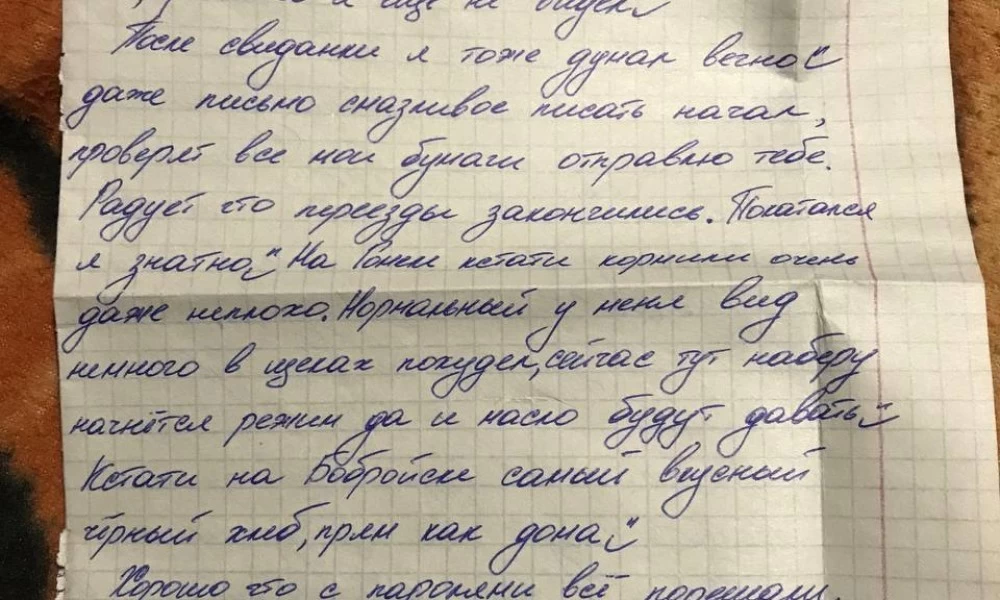 и еще не
После свиданки я тоже думал вечно
даже письмо сназливое писать начал,
проверят все мои бумаги отправлю тебе.
Радует что переезды закончились. Покатался
я знатно На кстати кормили очень
даже неплохо. Нормальный у меня вид
немного в щеках похудел, сейчас тут наберу
начнётся режим да и масло будут давать
Кстати на Бобруйске самый вкусный
чёрный хлеб, прям как дома
Хорошо что с паролями всё порешали.